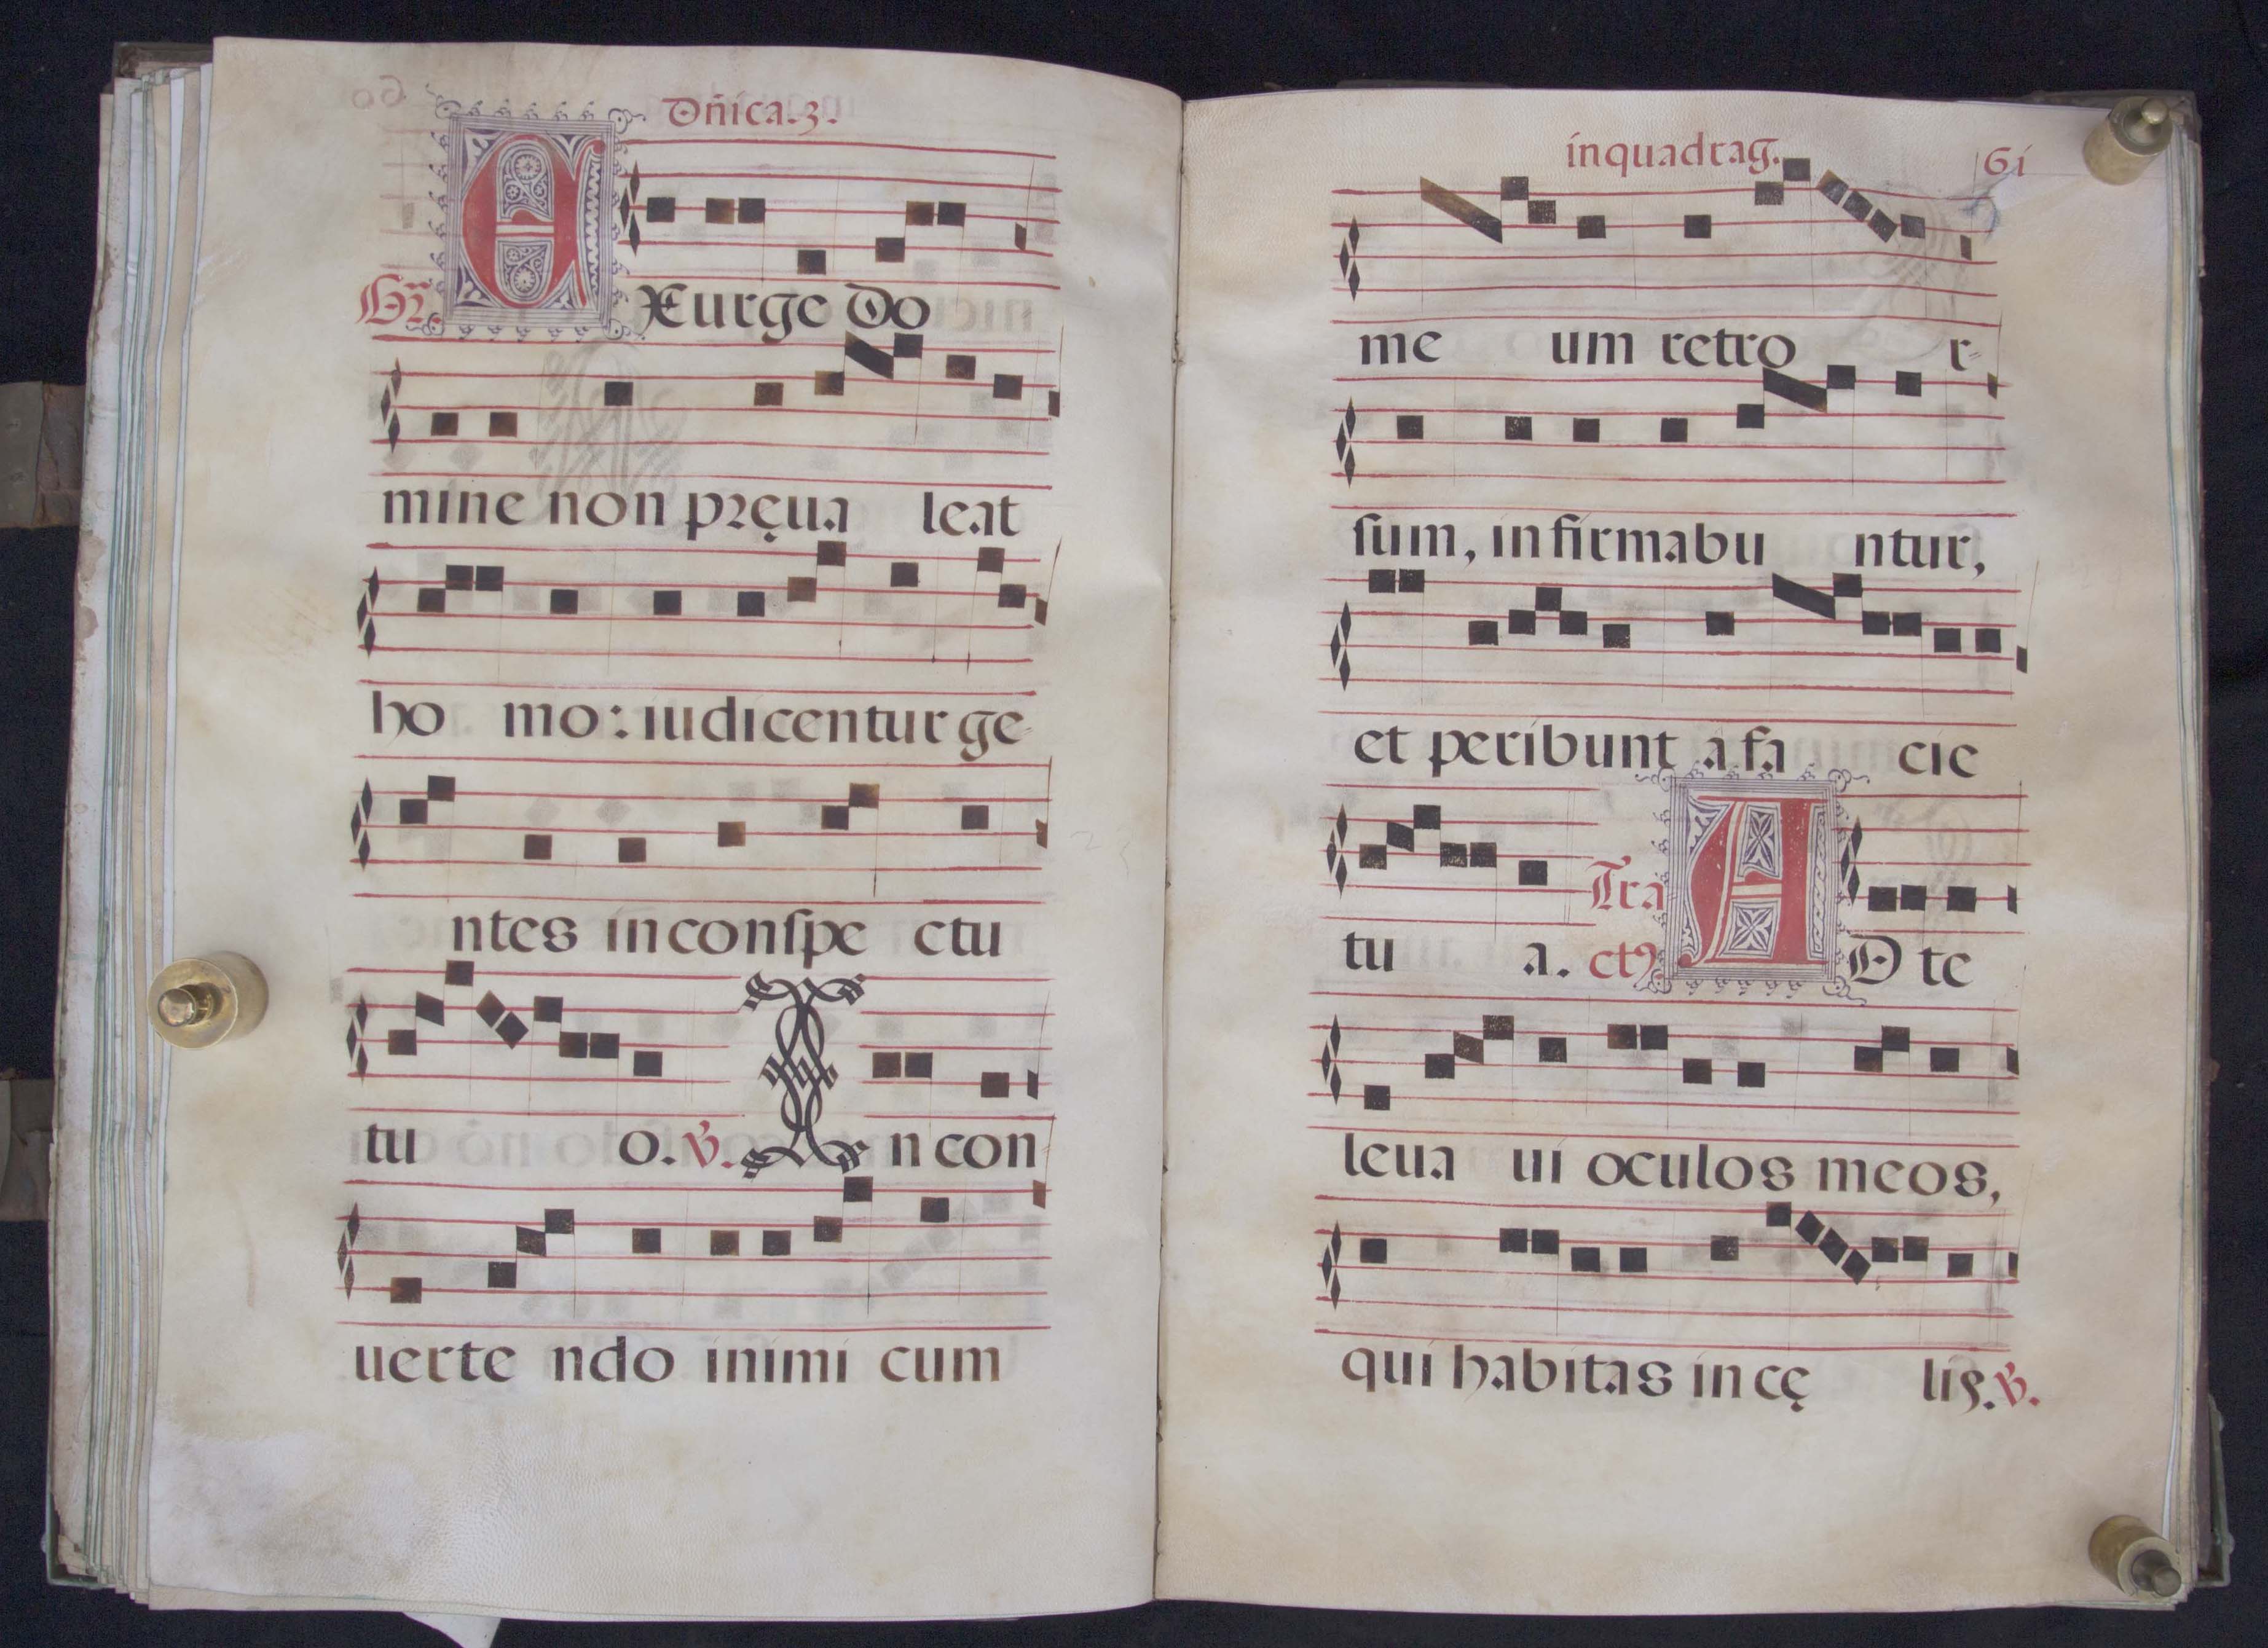 Dn̄ica.3.
Gr. EXurge Do
mine non pręua leat
ho mo: iudicentur ge-
ntes in conſpe ctu
tu o. ℣. In con
uerte ndo inimi cum
inquadrag. 61
me um retro r-
ſum, infirmabu ntur,
et peribunt a fa cie
tu a. Tractꝰ AD te
leua ui oculos meos,
qui habitas in cę lis. ℣.